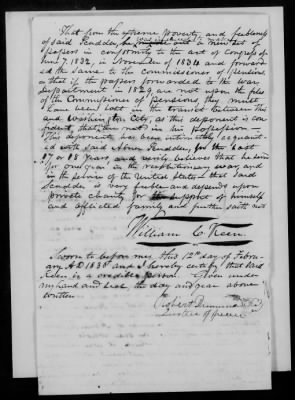 That from the extreme poverty, and feebleness
of said Scudder, he was induced to make out a new set of
papers in conformity to the act of Congress of
June 7, 1832, in November of 1834 and forward-
ed the same to the Commissioner of Pensions
as if the papers forwarded to the War
department in 1829, are not upon the files
of the Commissioner of Pensions, they must
have been lost in the transit between this
and Washington City, as this deponent is con-
fident, that are not in his possession—
This deponent has been intimately acquaint-
ed with said Abner Scudder, for the last
17 or 18 years, and verily believes that he served
for one year in the revolutionary war, and
in the service of the United States—that said
Scudder is very feeble and depends upon
private charity for the support of himself
and afflicted family and further saith not
William C. Keen.
Sworn to before me, this 12th day of Febru-
ary A.D. 1835 and I hereby certify that said
Keen is a credible Given under
my hand and seal the day and year above
written
Robert Drummond
Justice of Peace